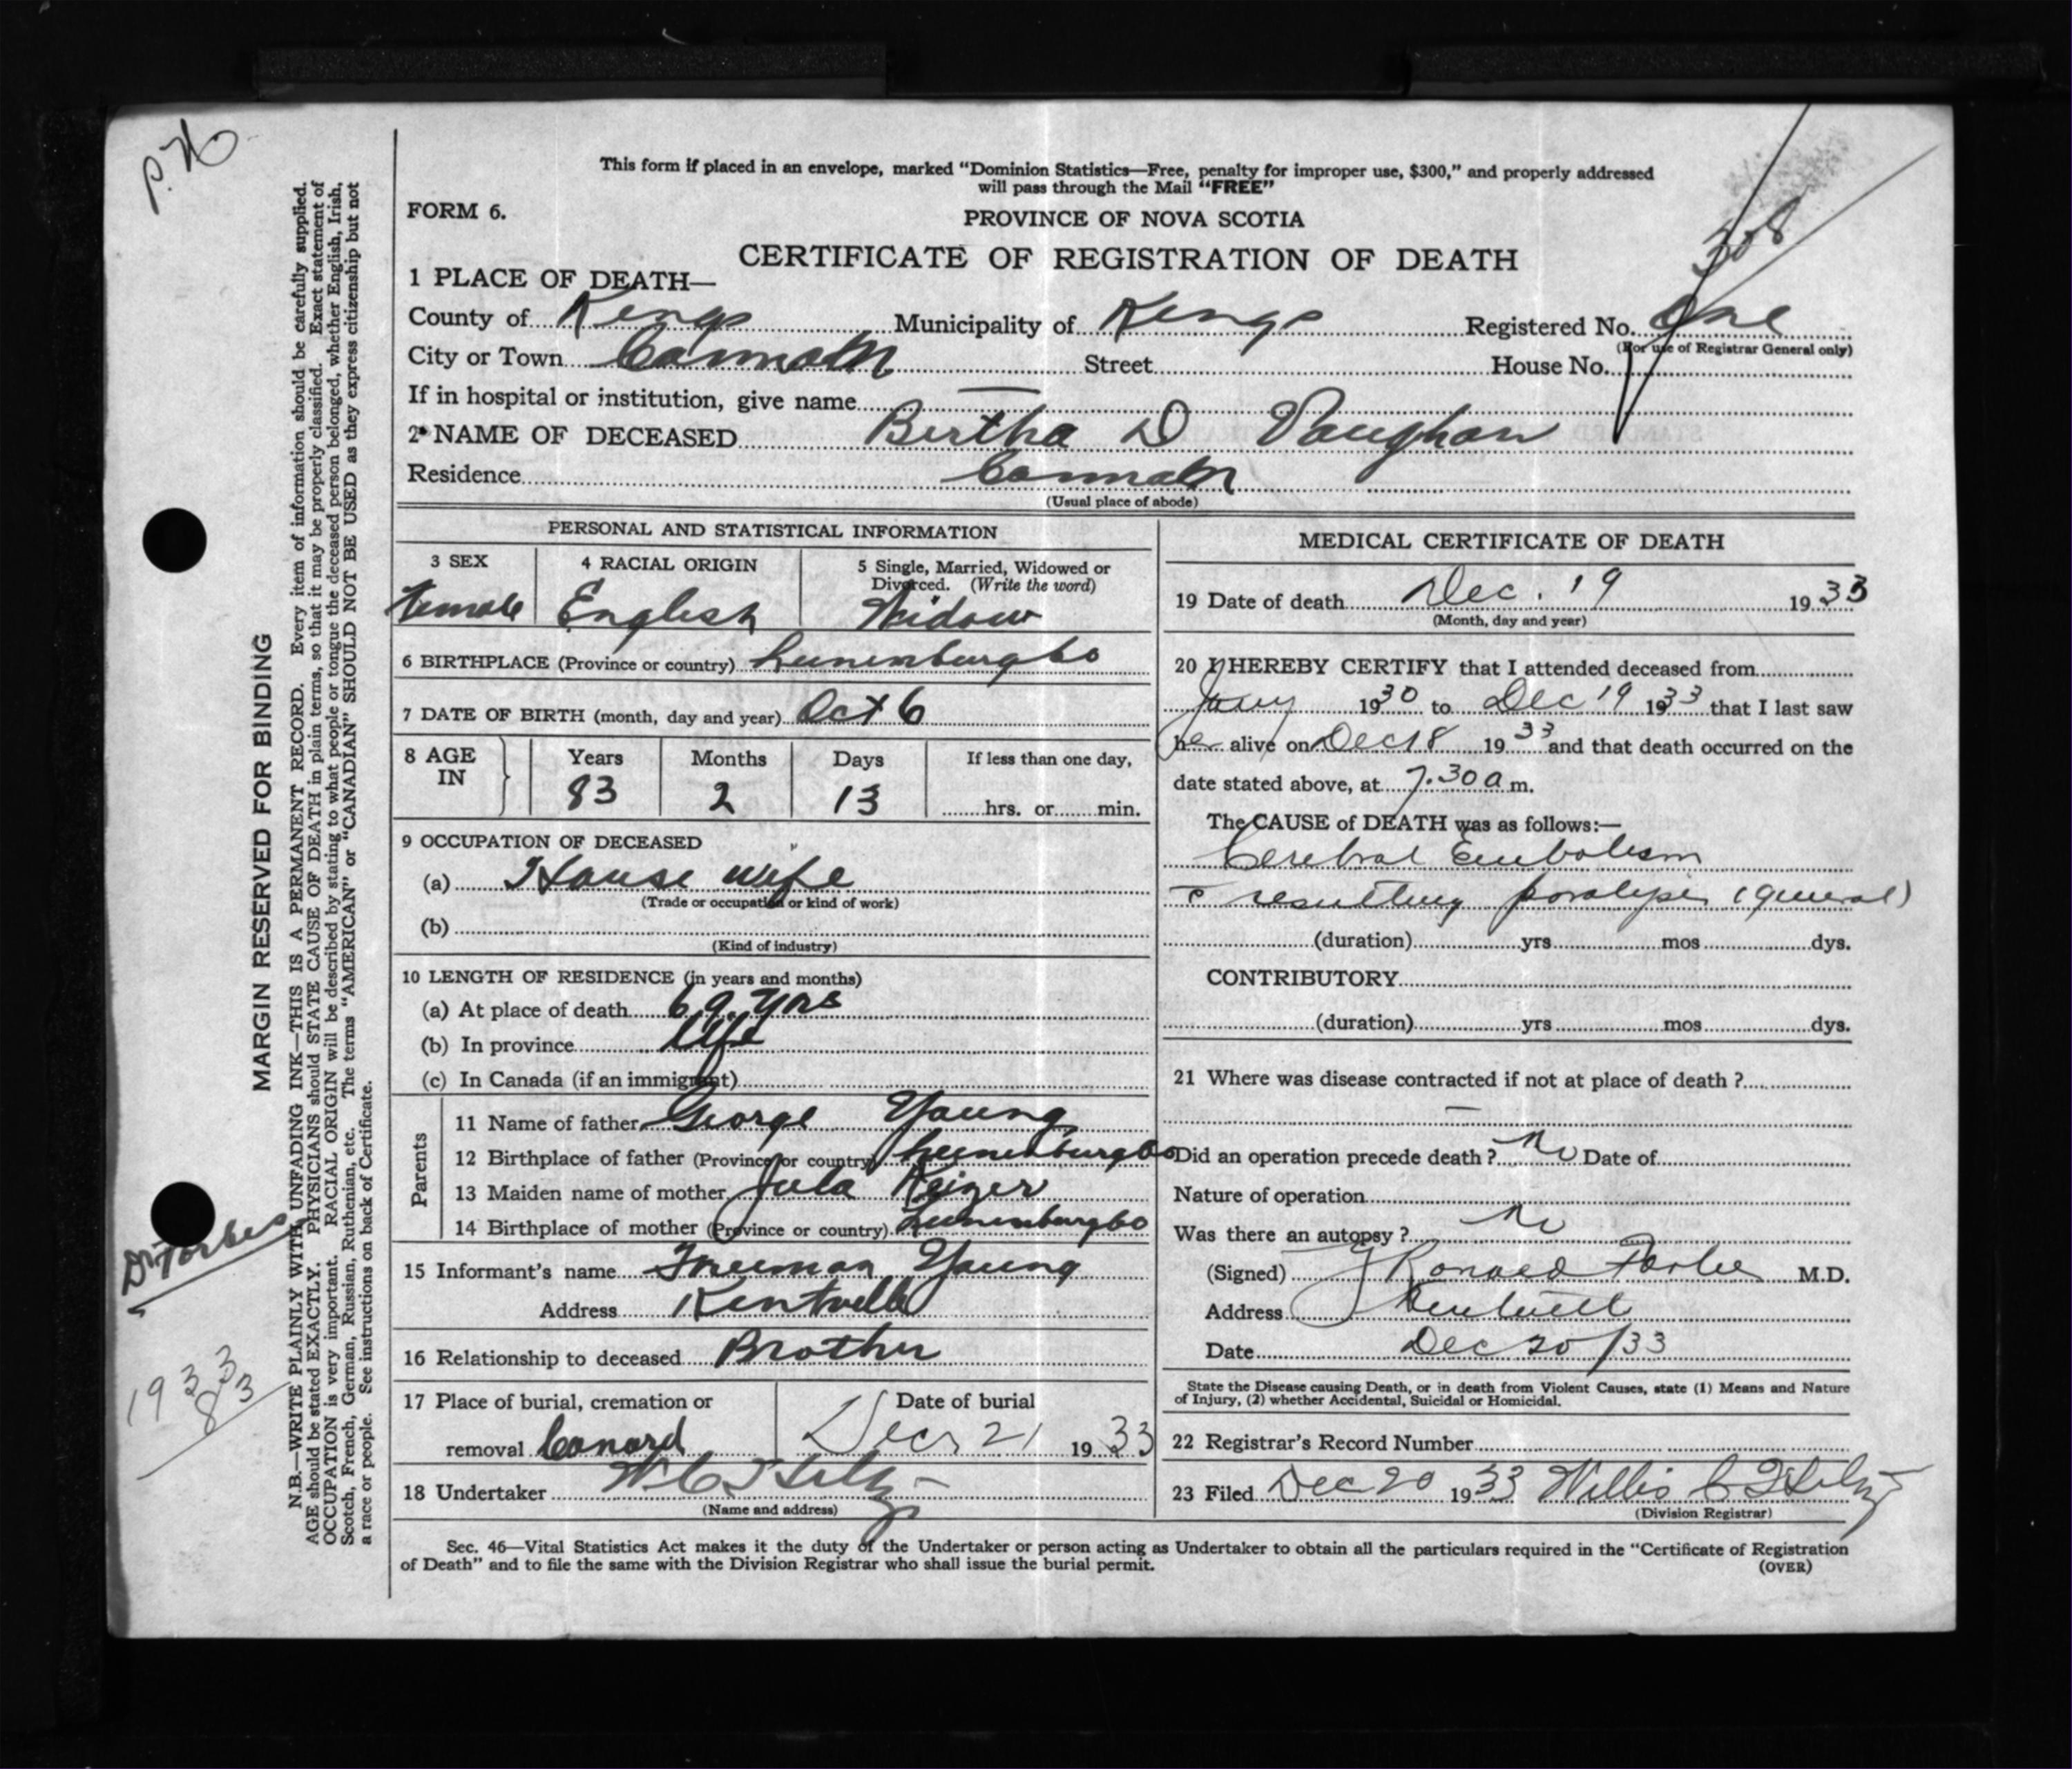 P.H.
This form if placed in an envelope, marked “Dominion Statistics—Free, penalty for improper use, $300,” and properly addressed
will pass through the Mail “FREE”
FORM 6.
PROVINCE OF NOVA SCOTIA
308
CERTIFICATE OF REGISTRATION OF DEATH
1 PLACE OF DEATH—
County of Kings Municipality of Kings Registered No. One
(For use of Registrar General only)
City or Town Street House No.
If in hospital or institution, give name —
2 NAME OF DECEASED Bertha D Vaughan
Residence
(Usual place of abode)
PERSONAL AND STATISTICAL INFORMATION
3 SEX 4 RACIAL ORIGIN 5 Single, Married, Widowed or
Divorced. (Write the word)
Female English Widow
6 BIRTHPLACE (Province or country) Lunenburg Co
7 DATE OF BIRTH (month, day and year) Oct 6
8 AGE IN Years Months Days If less than one day,
83 2 13 hrs. or min.
9 OCCUPATION OF DECEASED
(a) House wife
(Trade or occupation or kind of work)
(b)
(Kind of industry)
10 LENGTH OF RESIDENCE (in years and months)
(a) At place of death 69 yrs
(b) In province Life
(c) In Canada (if an immigrant)
Parents
11 Name of father George Young
12 Birthplace of father (Province or country) Lunenburg Co
13 Maiden name of mother Jula Keizer
14 Birthplace of mother (Province or country) Lunenburg Co
15 Informant's name Freeman Young
Address Kentville
16 Relationship to deceased Brother
17 Place of burial, cremation or Date of burial
removal Canard Decr 21 1933
18 Undertaker W C Hiltz
(Name and address)
MEDICAL CERTIFICATE OF DEATH
19 Date of death Dec. 19 1933
(Month, day and year)
20 I HEREBY CERTIFY that I attended deceased from
Jany 1930 to Dec 19 1933 that I last saw
her alive on Dec 18 1933 and that death occurred on the
date stated above, at 7.30 a m.
The CAUSE of DEATH was as follows:—
Cerebral Embolism
c resulting paralysis (general)
(duration) yrs mos dys.
CONTRIBUTORY
(duration) yrs mos dys.
21 Where was disease contracted if not at place of death ?
—
Did an operation precede death ? No Date of
Nature of operation
Was there an autopsy ? No
(Signed) J Ronald Forbes M.D.
Address Kentville
Date Dec 20/33
State the Disease causing Death, or in death from Violent Causes, state (1) Means and Nature
of Injury, (2) whether Accidental, Suicidal or Homicidal.
22 Registrar's Record Number
23 Filed Dec 20 1933 Willis C Hiltz
(Division Registrar)
Sec. 46—Vital Statistics Act makes it the duty of the Undertaker or person acting as Undertaker to obtain all the particulars required in the “Certificate of Registration
of Death” and to file the same with the Division Registrar who shall issue the burial permit. (OVER)
MARGIN RESERVED FOR BINDING
N.B.—WRITE PLAINLY WITH UNFADING INK—THIS IS A PERMANENT RECORD. Every item of information should be carefully supplied.
AGE should be stated EXACTLY. PHYSICIANS should STATE CAUSE OF DEATH in plain terms, so that it may be properly classified. Exact statement of
OCCUPATION is very important. RACIAL ORIGIN will be described by stating to what people or tongue the deceased person belonged, whether English, Irish,
Scotch, French, German, Russian, Ruthenian, etc. The terms “AMERICAN” or “CANADIAN” SHOULD NOT BE USED as they express citizenship but not
a race or people. See instructions on back of Certificate.
Dr Forbes
1933
83